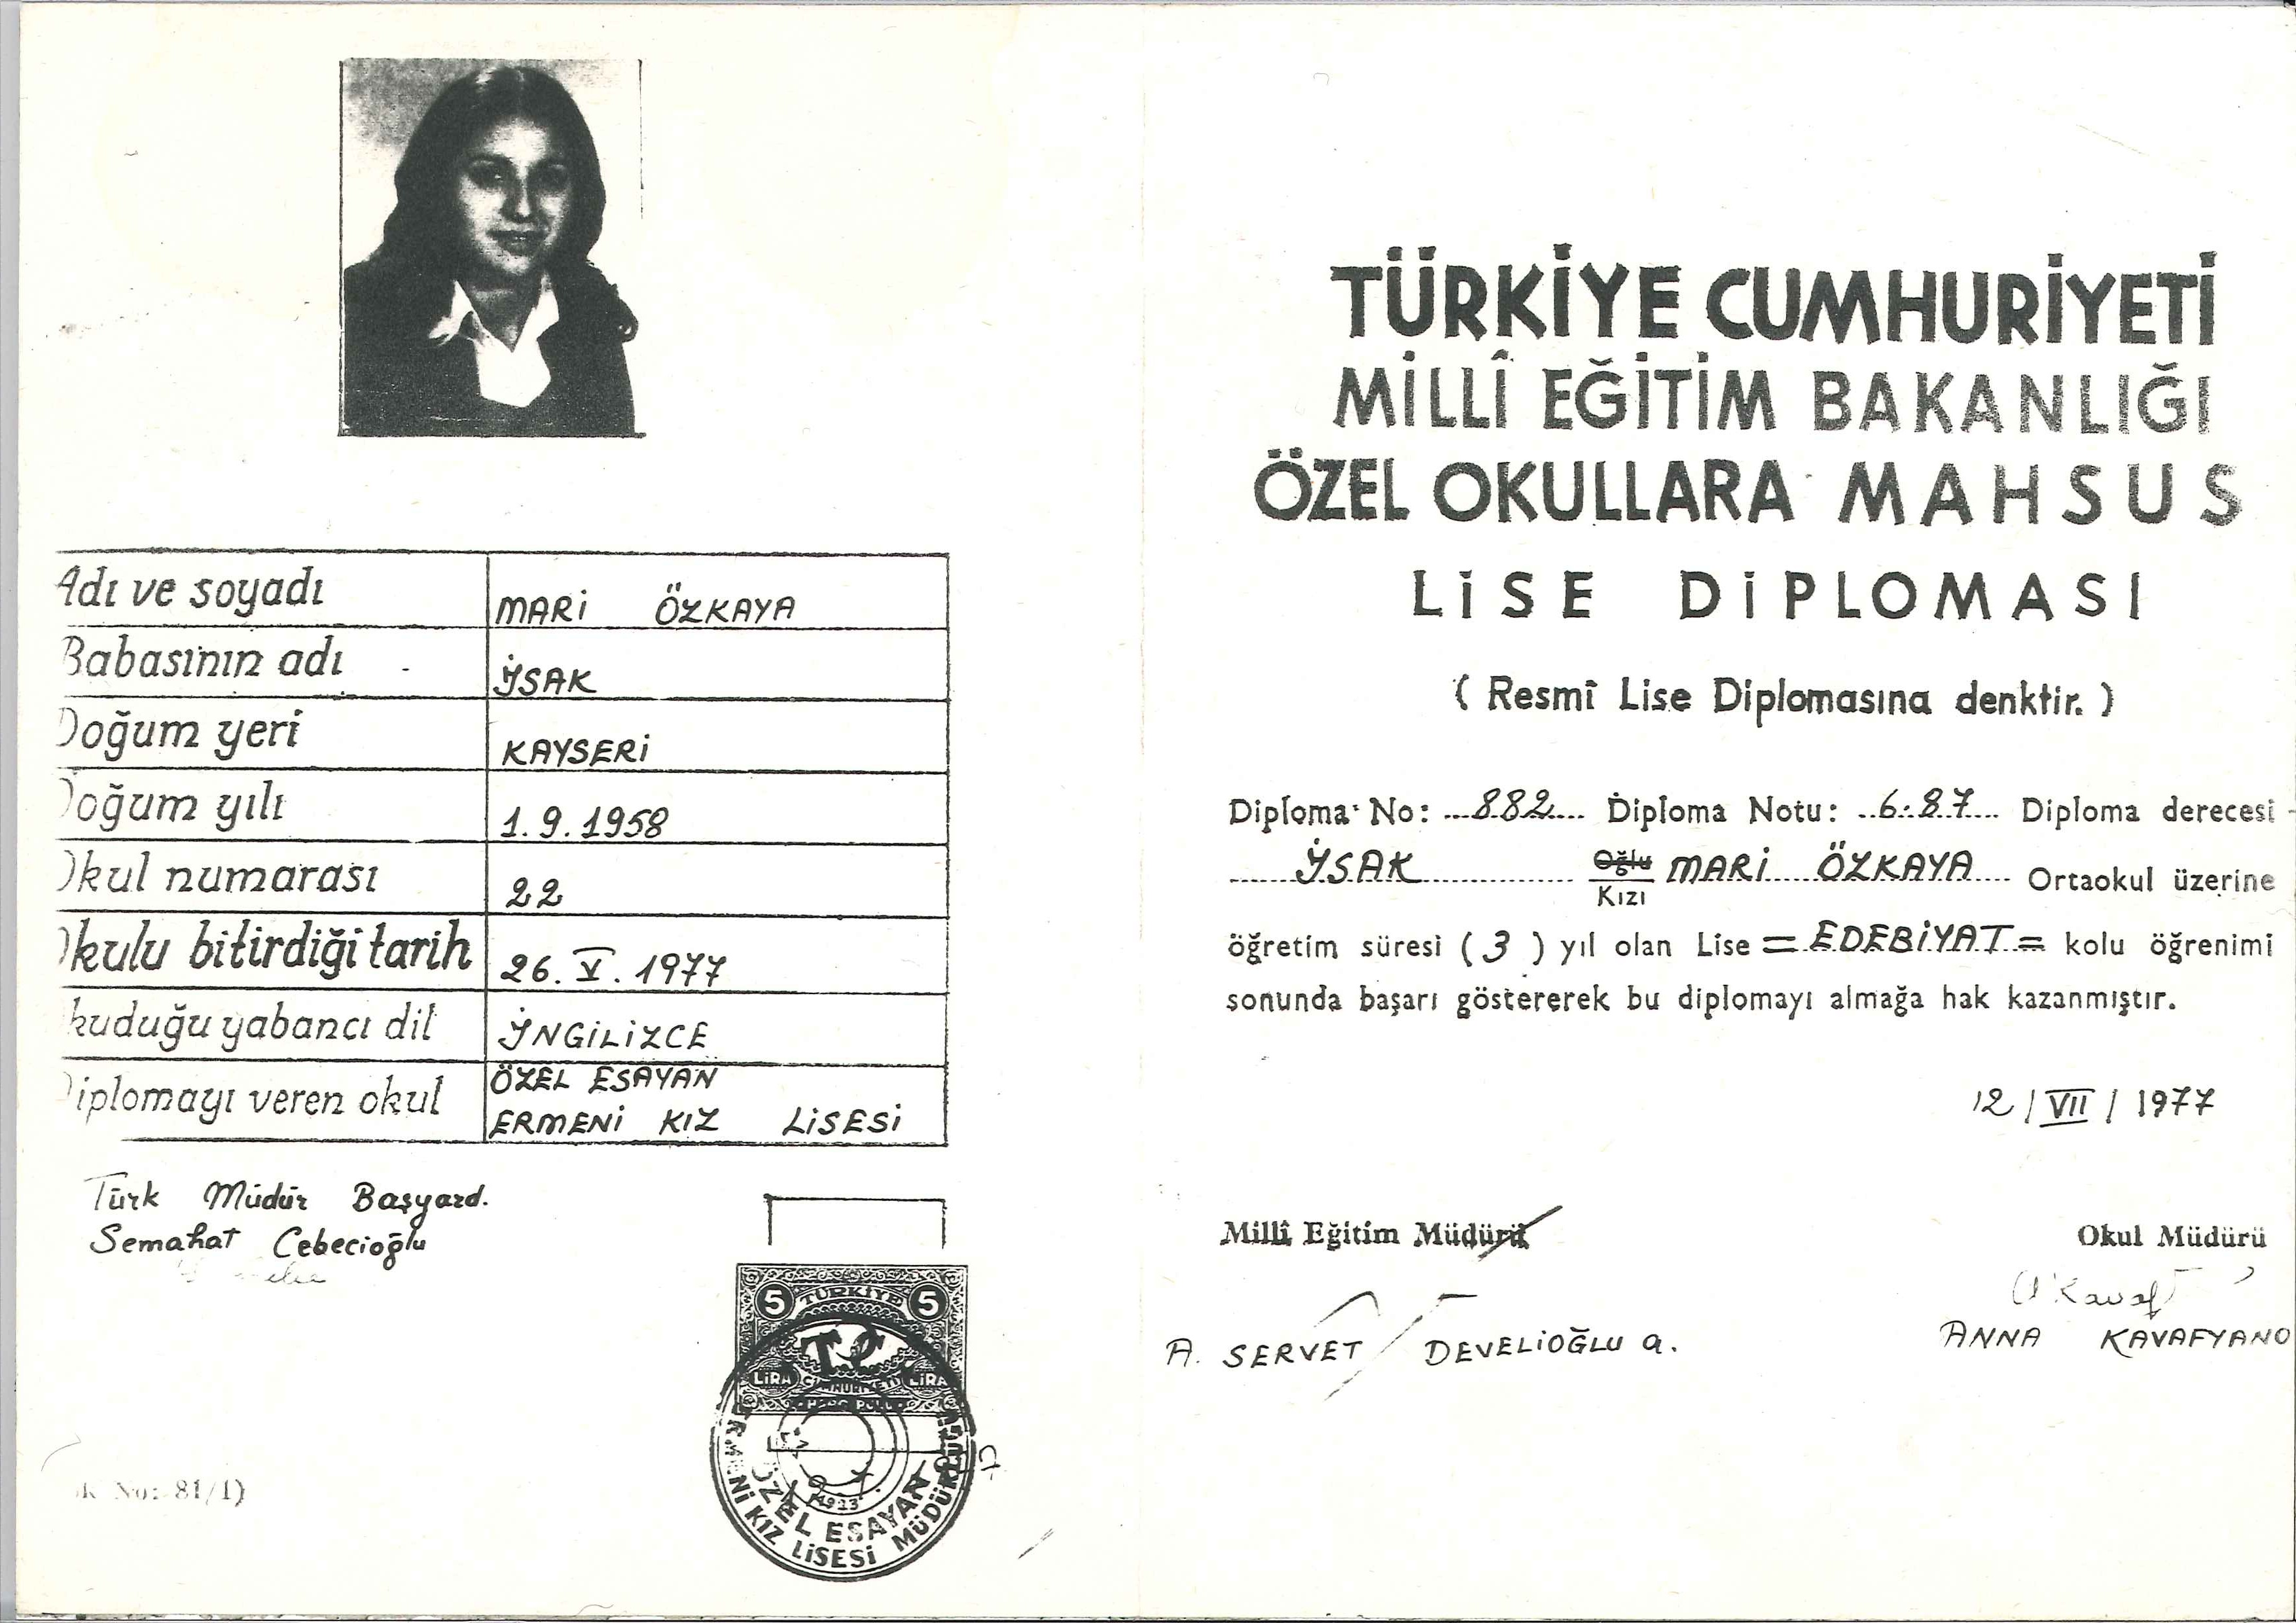 Adı ve soyadı MARİ ÖZKAYA
Babasının adı İSAK
Doğum yeri KAYSERİ
Doğum yılı 1.9.1958
Okul numarası 22
Okulu bitirdiği tarih 26.V.1977
kuduğu yabancı dil İNGİLİZCE
iplomayı veren okul ÖZEL ESAYAN
ERMENİ KIZ LİSESİ
Türk Müdür Başyard.
Semahat Cebecioğlu
5 TÜRKİYE 5
T.C.
LİRA CUMHURİYETİ LİRA
1923
ÖZEL ESAYAN
ERMENİ KIZ LİSESİ MÜDÜRLÜĞÜ
No: 81/1)
TÜRKİYE CUMHURİYETİ
MİLLÎ EĞİTİM BAKANLIĞI
ÖZEL OKULLARA MAHSUS
LİSE DİPLOMASI
( Resmî Lise Diplomasına denktir. )
Diploma No: 882 Diploma Notu: 6.87 Diploma derecesi -
İSAK Oğlu Kızı MARİ ÖZKAYA Ortaokul üzerine
öğretim süresi ( 3 ) yıl olan Lise = EDEBİYAT = kolu öğrenimi
sonunda başarı göstererek bu diplomayı almağa hak kazanmıştır.
12 / VII / 1977
Millî Eğitim Müdürü
Okul Müdürü
A. SERVET DEVELİOĞLU a.
ANNA KAVAFYANO